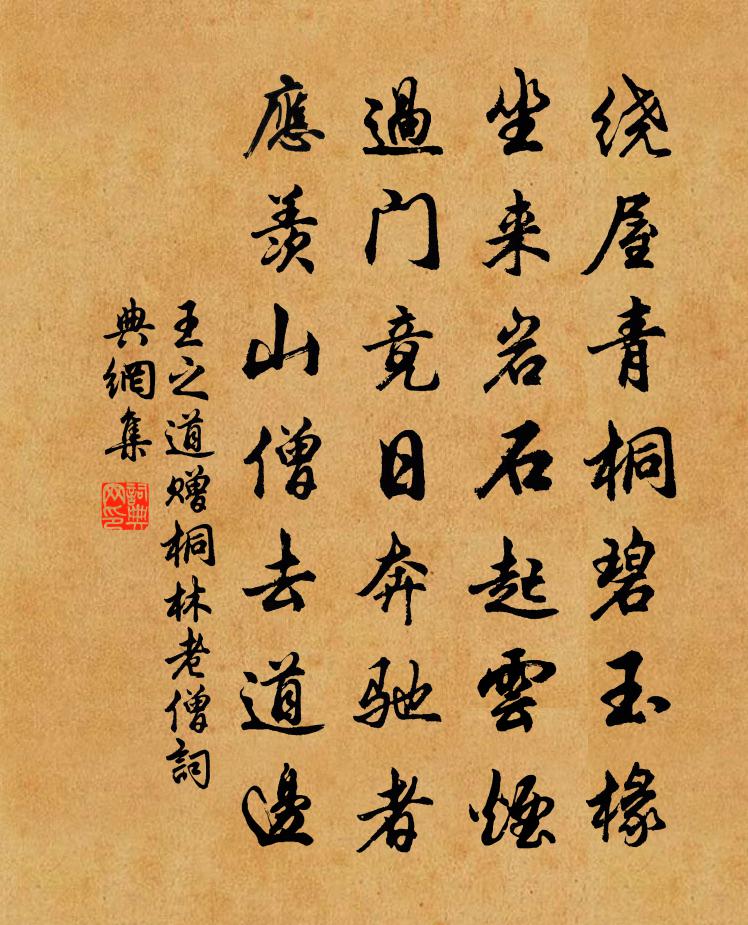 绕屋青桐碧玉椽
坐来岩石起雲煙
過门竟日奔驰者
應羡山僧去道邊
王之道赠桐林老僧詞
典網集
詞典
网印